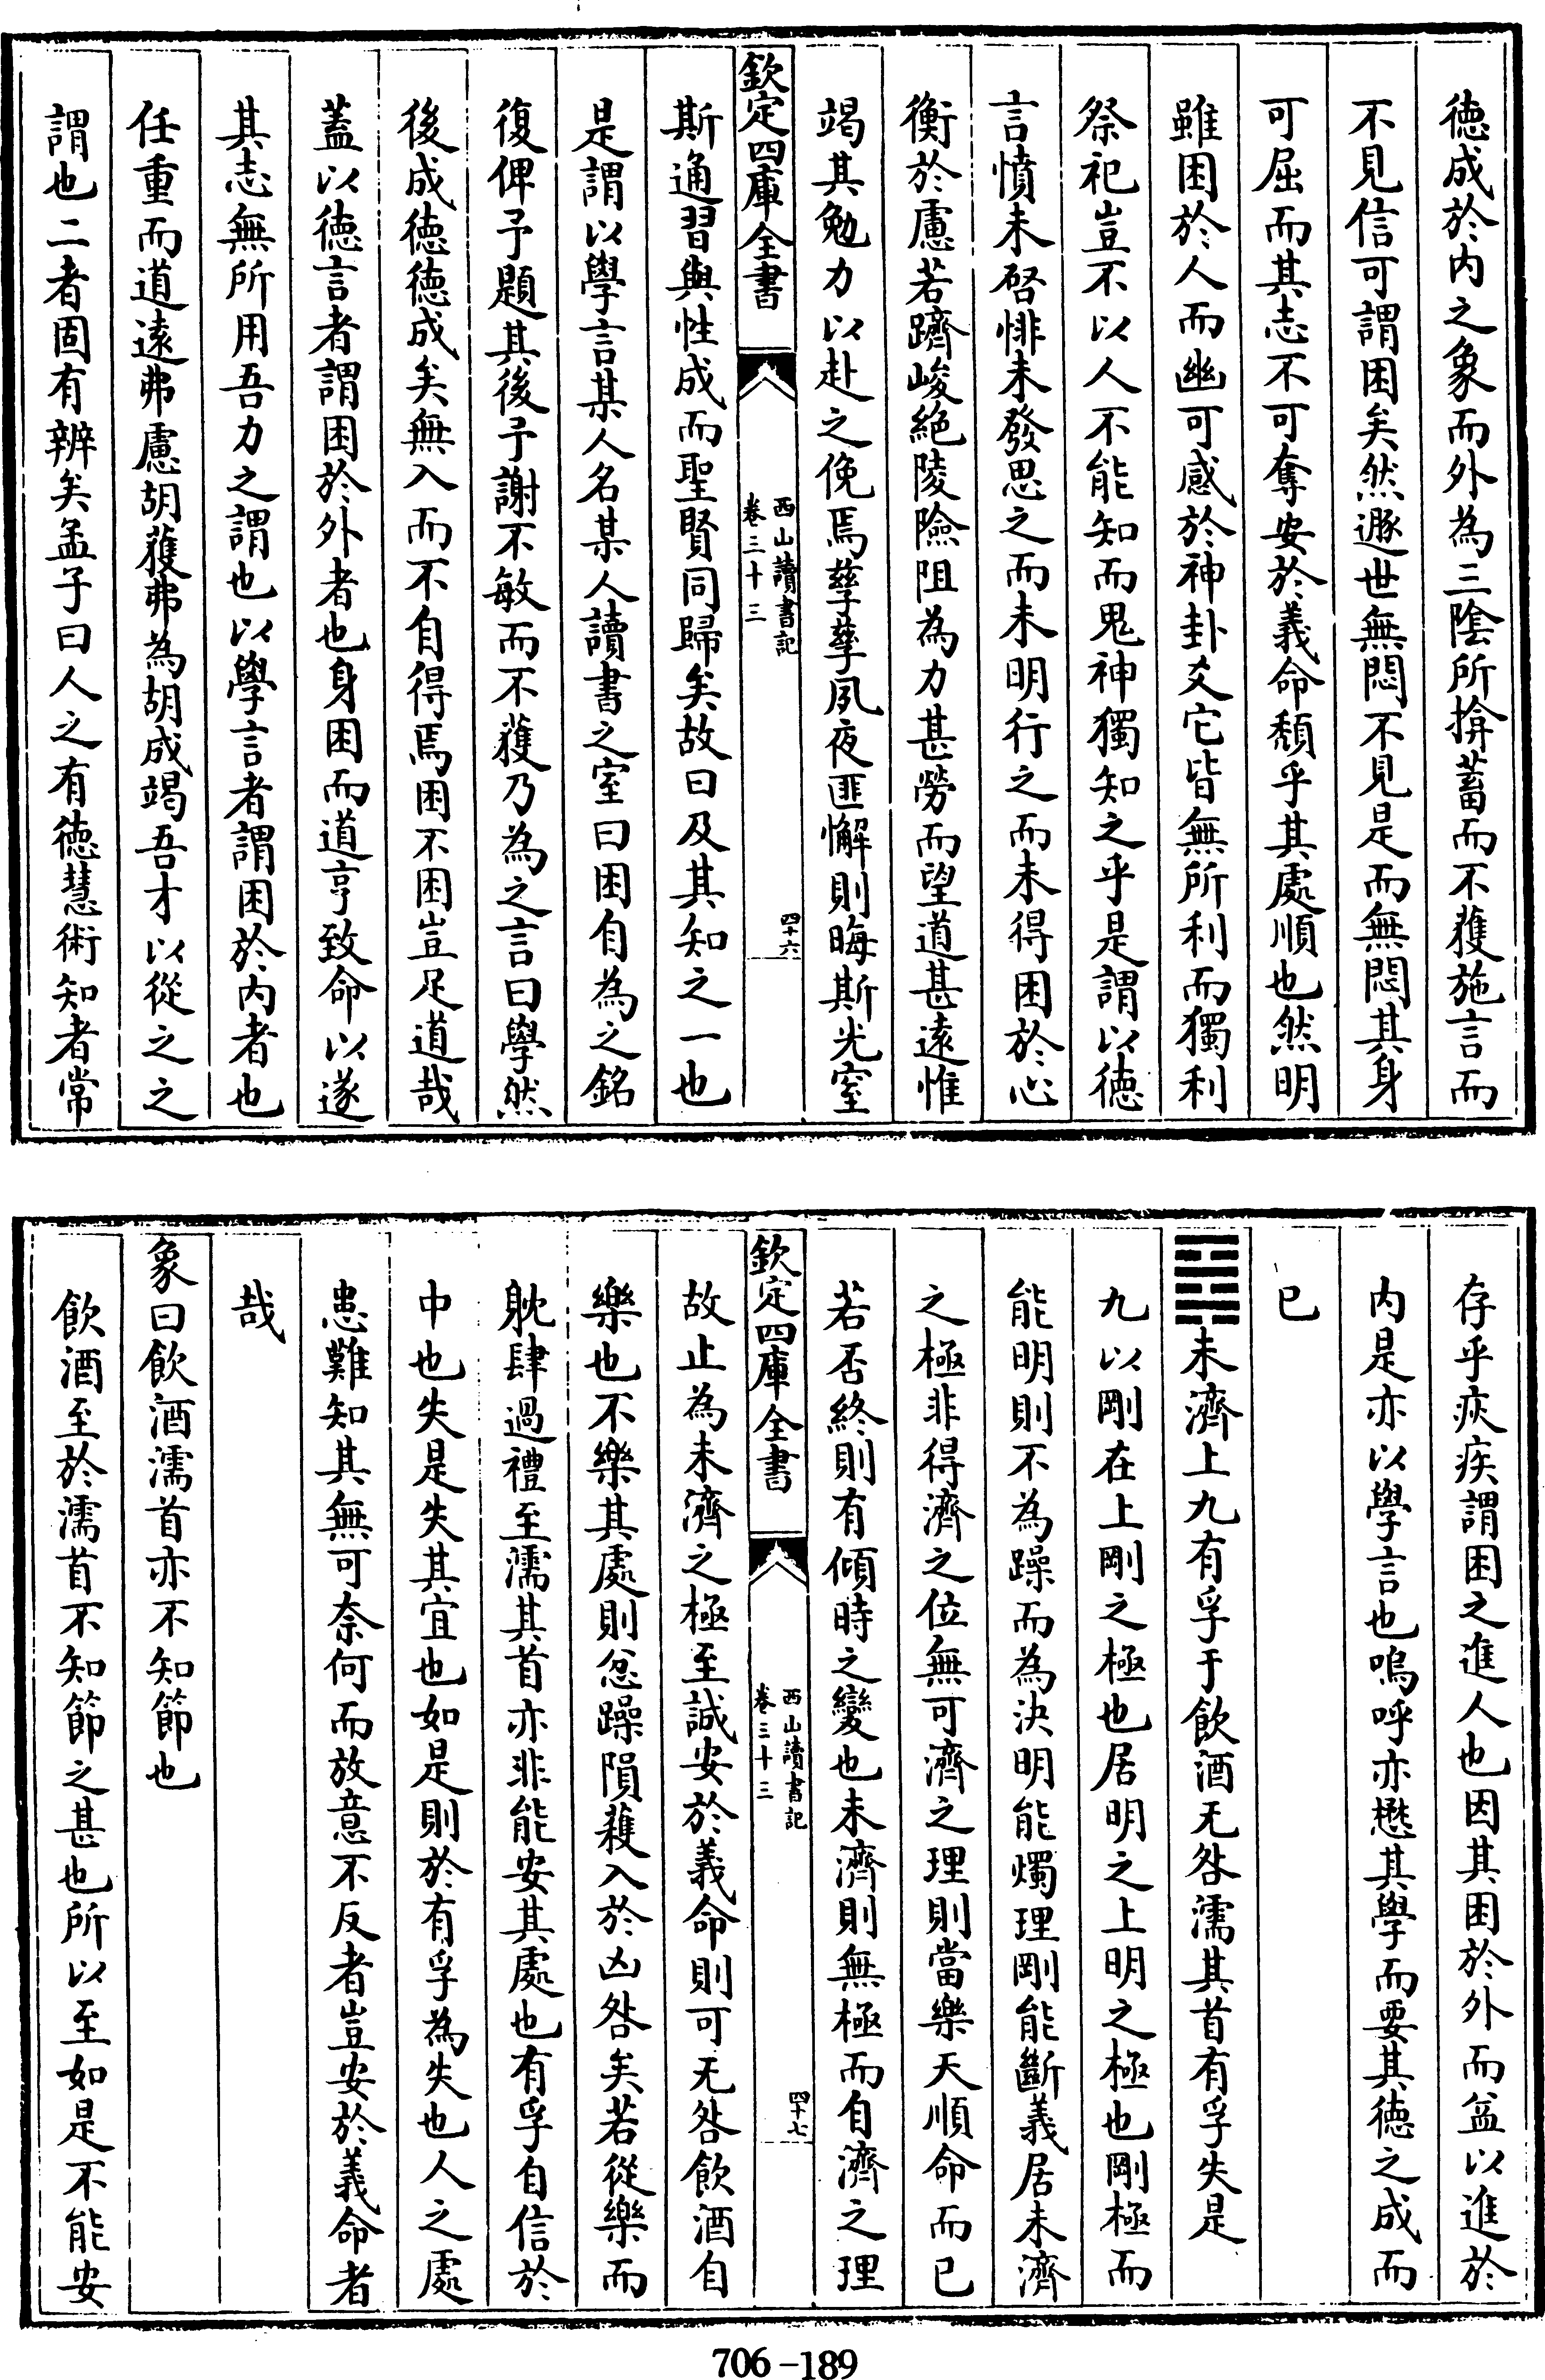 德成於内之象而外為三陰所揜蓄而不獲施言而
不見信可謂困矣然遯世無悶不見是而無悶其身
可屈而其志不可奪安於義命頽乎其處順也然明
雖困於人而幽可感於神卦爻它皆無所利而獨利
祭祀豈不以人不能知而鬼神獨知之乎是謂以德
言憤未啓悱未發思之而未明行之而未得困於心
衡於慮若躋峻絶陵險阻為力甚勞而望道甚遠惟
竭其勉力以赴之俛焉孳孳夙夜匪懈則晦斯光窒
欽定四庫全書
西山讀書記
卷三十三
四十六
斯通習與性成而聖賢同歸矣故曰及其知之一也
是謂以學言某人名某人讀書之室曰困自為之銘
復俾予題其後予謝不敏而不獲乃為之言曰學然
後成德德成矣無入而不自得焉困不困豈足道哉
蓋以德言者謂困於外者也身困而道亨致命以遂
其志無所用吾力之謂也以學言者謂困於内者也
任重而道逺弗慮胡獲弗為胡成竭吾才以從之之
謂也二者固有辨矣孟子曰人之有德慧術知者常
存乎疢疾謂困之進人也因其困於外而益以進於
内是亦以學言也嗚呼亦懋其學而要其德之成而
已
䷿未濟上九有孚于飲酒无咎濡其首有孚失是
九以剛在上剛之極也居明之上明之極也剛極而
能明則不為躁而為決明能燭理剛能斷義居未濟
之極非得濟之位無可濟之理則當樂天順命而已
若否終則有傾時之變也未濟則無極而自濟之理
欽定四庫全書
西山讀書記
卷三十三
四十七
故止為未濟之極至誠安於義命則可无咎飲酒自
樂也不樂其處則忿躁隕穫入於凶咎矣若從樂而
躭肆過禮至濡其首亦非能安其處也有孚自信於
中也失是失其宜也如是則於有孚為失也人之處
患難知其無可奈何而放意不反者豈安於義命者
哉
象曰飲酒濡首亦不知節也
飲酒至於濡首不知節之甚也所以至如是不能安
706-189